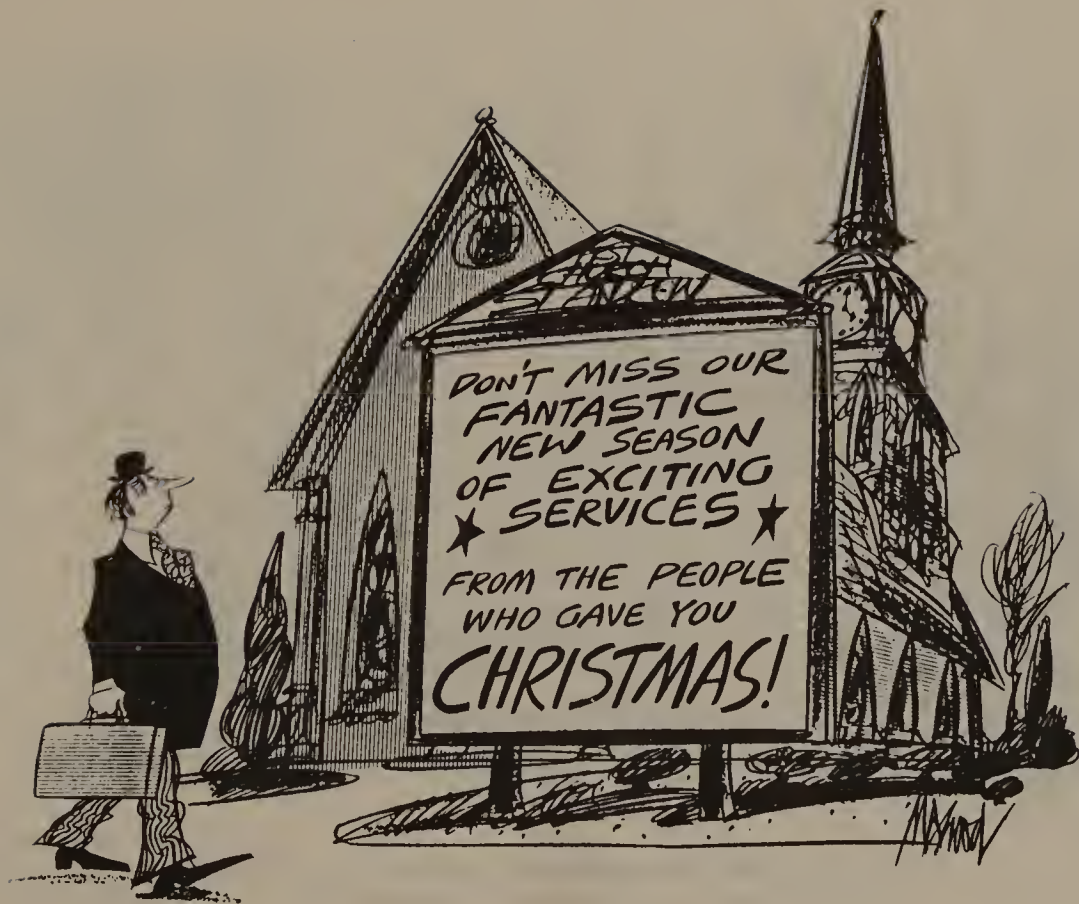 ST. ANDREW
DON'T MISS OUR
FANTASTIC
NEW SEASON
OF EXCITING
SERVICES
FROM THE PEOPLE
WHO GAVE YOU
CHRISTMAS!